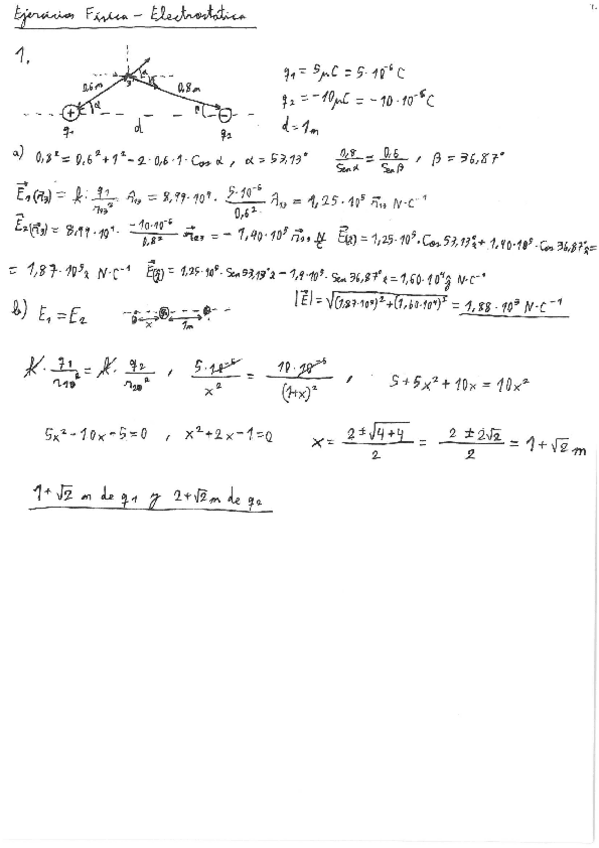 Ejercicios Física - Electrostática
1.
0,6m α 0,8m
q₁ = 5μC = 5·10⁻⁶ C
+ α β -
q₂ = -10μC = -10·10⁻⁶ C
q₁ d q₂
d = 1m
a) 0,8² = 0,6² + 1² - 2·0,6·1·Cos α , α = 53,13° 0,8/Sen α = 0,6/Sen β , β = 36,87°
E₁(r₃) = k · q₁/r₁₃² r₁₃ = 8,99·10⁹ · 5·10⁻⁶/0,6² r₁₃ = 1,25·10⁵ r₁₃ N·C⁻¹
E₂(r₃) = 8,99·10⁹ · -10·10⁻⁶/0,8² r₂₃ = -1,40·10⁵ N/C = 1,25·10⁵·Cos 53,13° + 1,40·10⁵·Cos 36,87° =
= 1,87·10⁵ N·C⁻¹ = 1,25·10⁵·Sen 53,13° - 1,4·10⁵·Sen 36,87° = 1,60·10⁴ N·C⁻¹
b) E₁ = E₂ x 1m
|E| = √(1,87·10⁵)² + (1,60·10⁴)² = 1,88·10⁵ N·C⁻¹
k · q₁/r₁₀² = k · q₂/r₂₀² , 5·10⁻⁶/x² = 10·10⁻⁶/(1+x)² , 5+5x²+10x = 10x²
5x²-10x-5=0 , x²+2x-1=0 x = 2±√4+4/2 = 2±2√2/2 = 1+√2 m
1+√2 m de q₁ y 2+√2 m de q₂